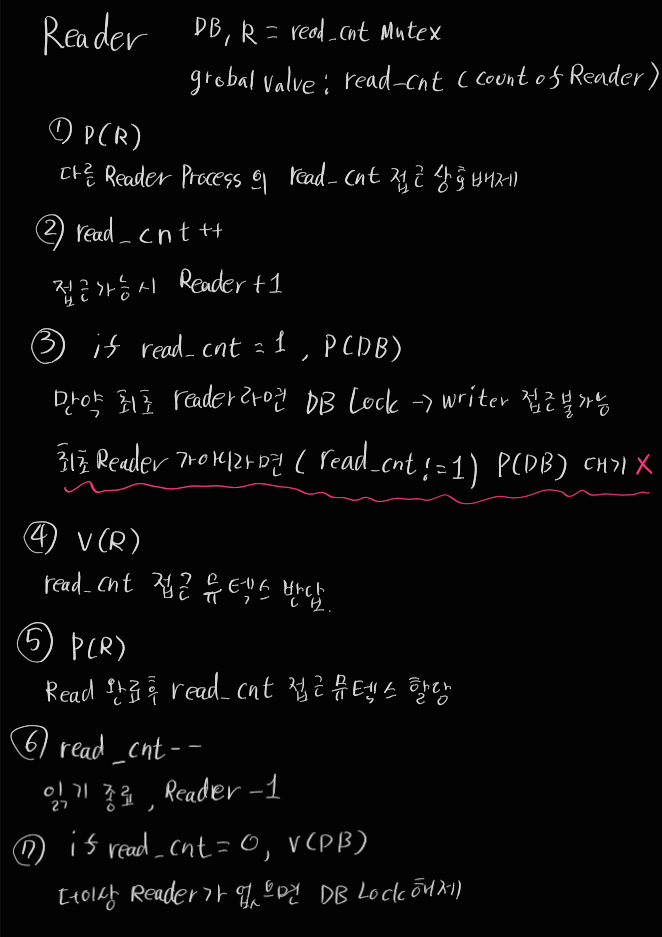 Reader DB, R = read_cnt Mutex
grobal valve : read_cnt (count of Reader)
① P(R)
다른 Reader Process의 read_cnt 접근 상호배제
② read_cnt++
접근가능시 Reader+1
③ if read_cnt = 1, P(DB)
만약 최초 reader라면 DB Lock → writer 접근불가능
최초Reader가아니라면 (read_cnt != 1) P(DB) 대기 X
④ V(R)
read_cnt 접근 뮤텍스 반납.
⑤ P(R)
Read 완료후 read_cnt 접근뮤텍스 할당
⑥ read_cnt--
읽기 종료, Reader -1
⑦ if read_cnt = 0, V(DB)
더이상 Reader가 없으면 DB Lock해제